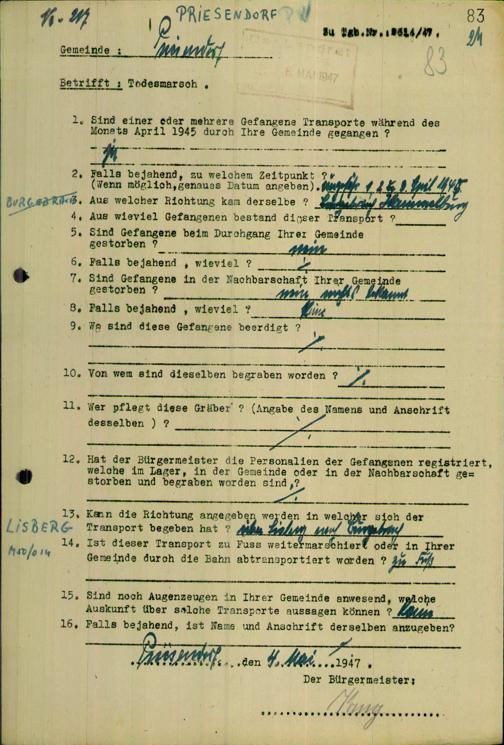 PRIESENDORF
83
24
Zu Tgb.Nr.:8614/47.
83
MAI 1947
Gemeinde : Priesendorf
Betrifft : Todesmarsch .
1. Sind einer oder mehrere Gefangene Transporte während des
Monats April 1945 durch Ihre Gemeinde gegangen ?
ja
2. Falls bejahend, zu welchem Zeitpunkt ?
(Wenn möglich,genaues Datum angeben). 1, 2 u. 3 April 1945
3. Aus welcher Richtung kam derselbe ? Hammelburg
4. Aus wieviel Gefangenen bestand dieser Transport ?
5. Sind Gefangene beim Durchgang Ihrer Gemeinde
gestorben ? nein
6. Falls bejahend , wieviel ?
7. Sind Gefangene in der Nachbarschaft Ihrer Gemeinde
gestorben ? nein nichts bekannt
8. Falls bejahend , wieviel ? keine
9. Wo sind diese Gefangene beerdigt ?
10. Von wem sind dieselben begraben worden ?
11. Wer pflegt diese Gräber ? (Angabe des Namens und Anschrift
desselben ) ?
12. Hat der Bürgermeister die Personalien der Gefangenen registriert,
welche im Lager, in der Gemeinde oder in der Nachbarschaft ge=
storben und begraben worden sind,?
13. Kann die Richtung angegeben werden in welcher sich der
Transport begeben hat ? über Lisberg nach
LISBERG
14. Ist dieser Transport zu Fuss weitermarschiert oder in Ihrer
Gemeinde durch die Bahn abtransportiert worden ? zu Fuß
15. Sind noch Augenzeugen in Ihrer Gemeinde anwesend, welche
Auskunft über solche Transporte aussagen können ?
16. Falls bejahend, ist Name und Anschrift derselben anzugeben?
Priesendorf, den 4. Mai 1947 .
Der Bürgermeister: